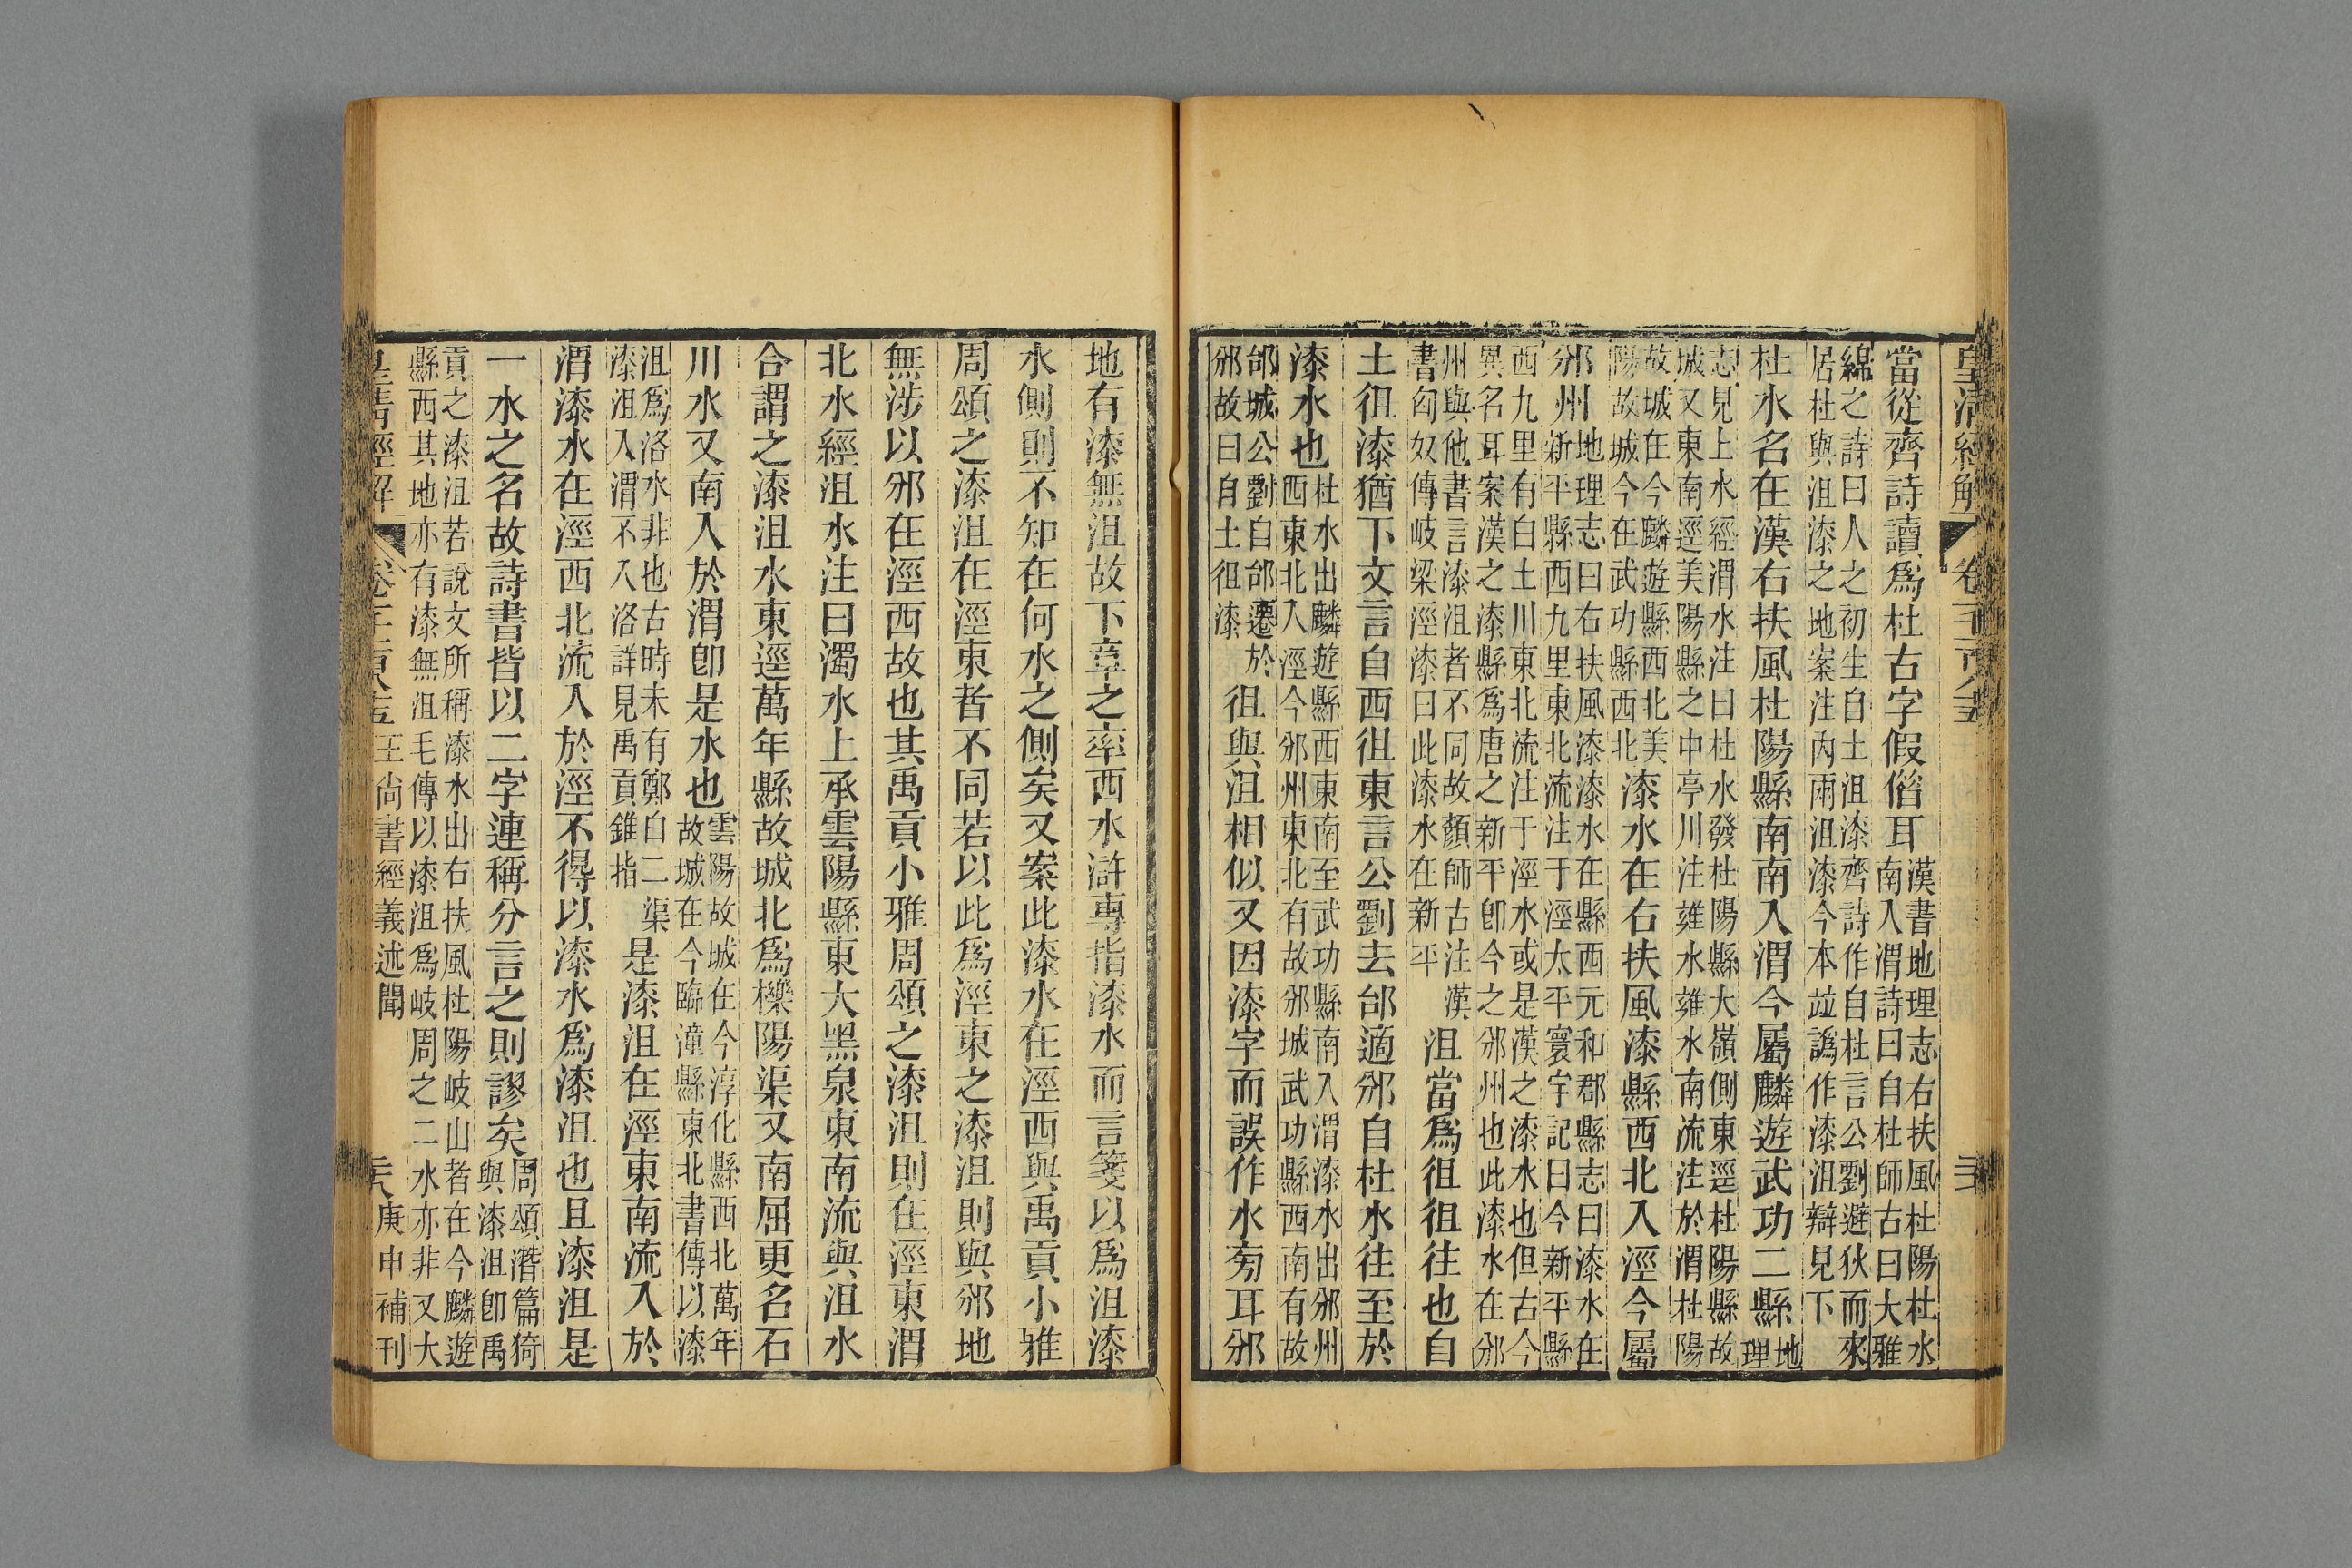 皇清經解
卷一千一百八十五
當從齊詩讀爲杜古字假借耳漢書地理志右扶風杜陽杜水南入渭詩曰自杜師古曰大雅
緜之詩曰人之初生自土沮漆齊詩作自杜言公劉避狄而來居杜與沮漆之地案注內兩沮漆今本並譌作漆沮辯見下
杜水名在漢右扶風杜陽縣南南入渭今屬麟遊武功二縣地理
志見上水經渭水注曰杜水發杜陽縣大嶺側東逕杜陽縣故城又東南逕美陽縣之中亭川注雍水雍水南流注於渭杜陽
故城在今麟遊縣西北美陽故城今在武功縣西北漆水在右扶風漆縣西北入涇今屬
邠州地理志曰右扶風漆漆水在縣西元和郡縣志曰漆水在新平縣西九里東北流注于涇太平寰宇記曰今新平縣
西九里有白土川東北流注于涇水或是漢之漆水也但古今異名耳案漢之漆縣爲唐之新平卽今之邠州也此漆水在邠
州與他書言漆沮者不同故顏師古注漢書匈奴傳岐梁涇漆曰此漆水在新平沮當爲徂徂往也自
土徂漆猶下文言自西徂東言公劉去邰適邠自杜水往至於
漆水也杜水出麟遊縣西東南至武功縣南入渭漆水出邠州西東北入涇今邠州東北有故邠城武功縣西南有故
邰城公劉自邰遷於邠故曰自土徂漆徂與沮相似又因漆字而誤作水旁耳邠
地有漆無沮故下章之率西水滸專指漆水而言箋以爲沮漆
水側則不知在何水之側矣又案此漆水在涇西與禹貢小雅
周頌之漆沮在涇東者不同若以此爲涇東之漆沮則與邠地
無涉以邠在涇西故也其禹貢小雅周頌之漆沮則在涇東渭
北水經沮水注曰濁水上承雲陽縣東大黑泉東南流與沮水
合謂之漆沮水東逕萬年縣故城北爲櫟陽渠又南屈更名石
川水又南入於渭卽是水也雲陽故城在今淳化縣西北萬年故城在今臨潼縣東北書傳以漆
沮爲洛水非也古時未有鄭白二渠漆沮入渭不入洛詳見禹貢錐指是漆沮在涇東南流入於
渭漆水在涇西北流入於涇不得以漆水爲漆沮也且漆沮是
一水之名故詩書皆以二字連稱分言之則謬矣周頌潛篇猗與漆沮卽禹
貢之漆沮若說文所稱漆水出右扶風杜陽岐山者在今麟遊縣西其地亦有漆無沮毛傳以漆沮爲岐周之二水亦非又大
皇清經解
卷一千一百八十五
王尚書經義述聞
庚申補刊